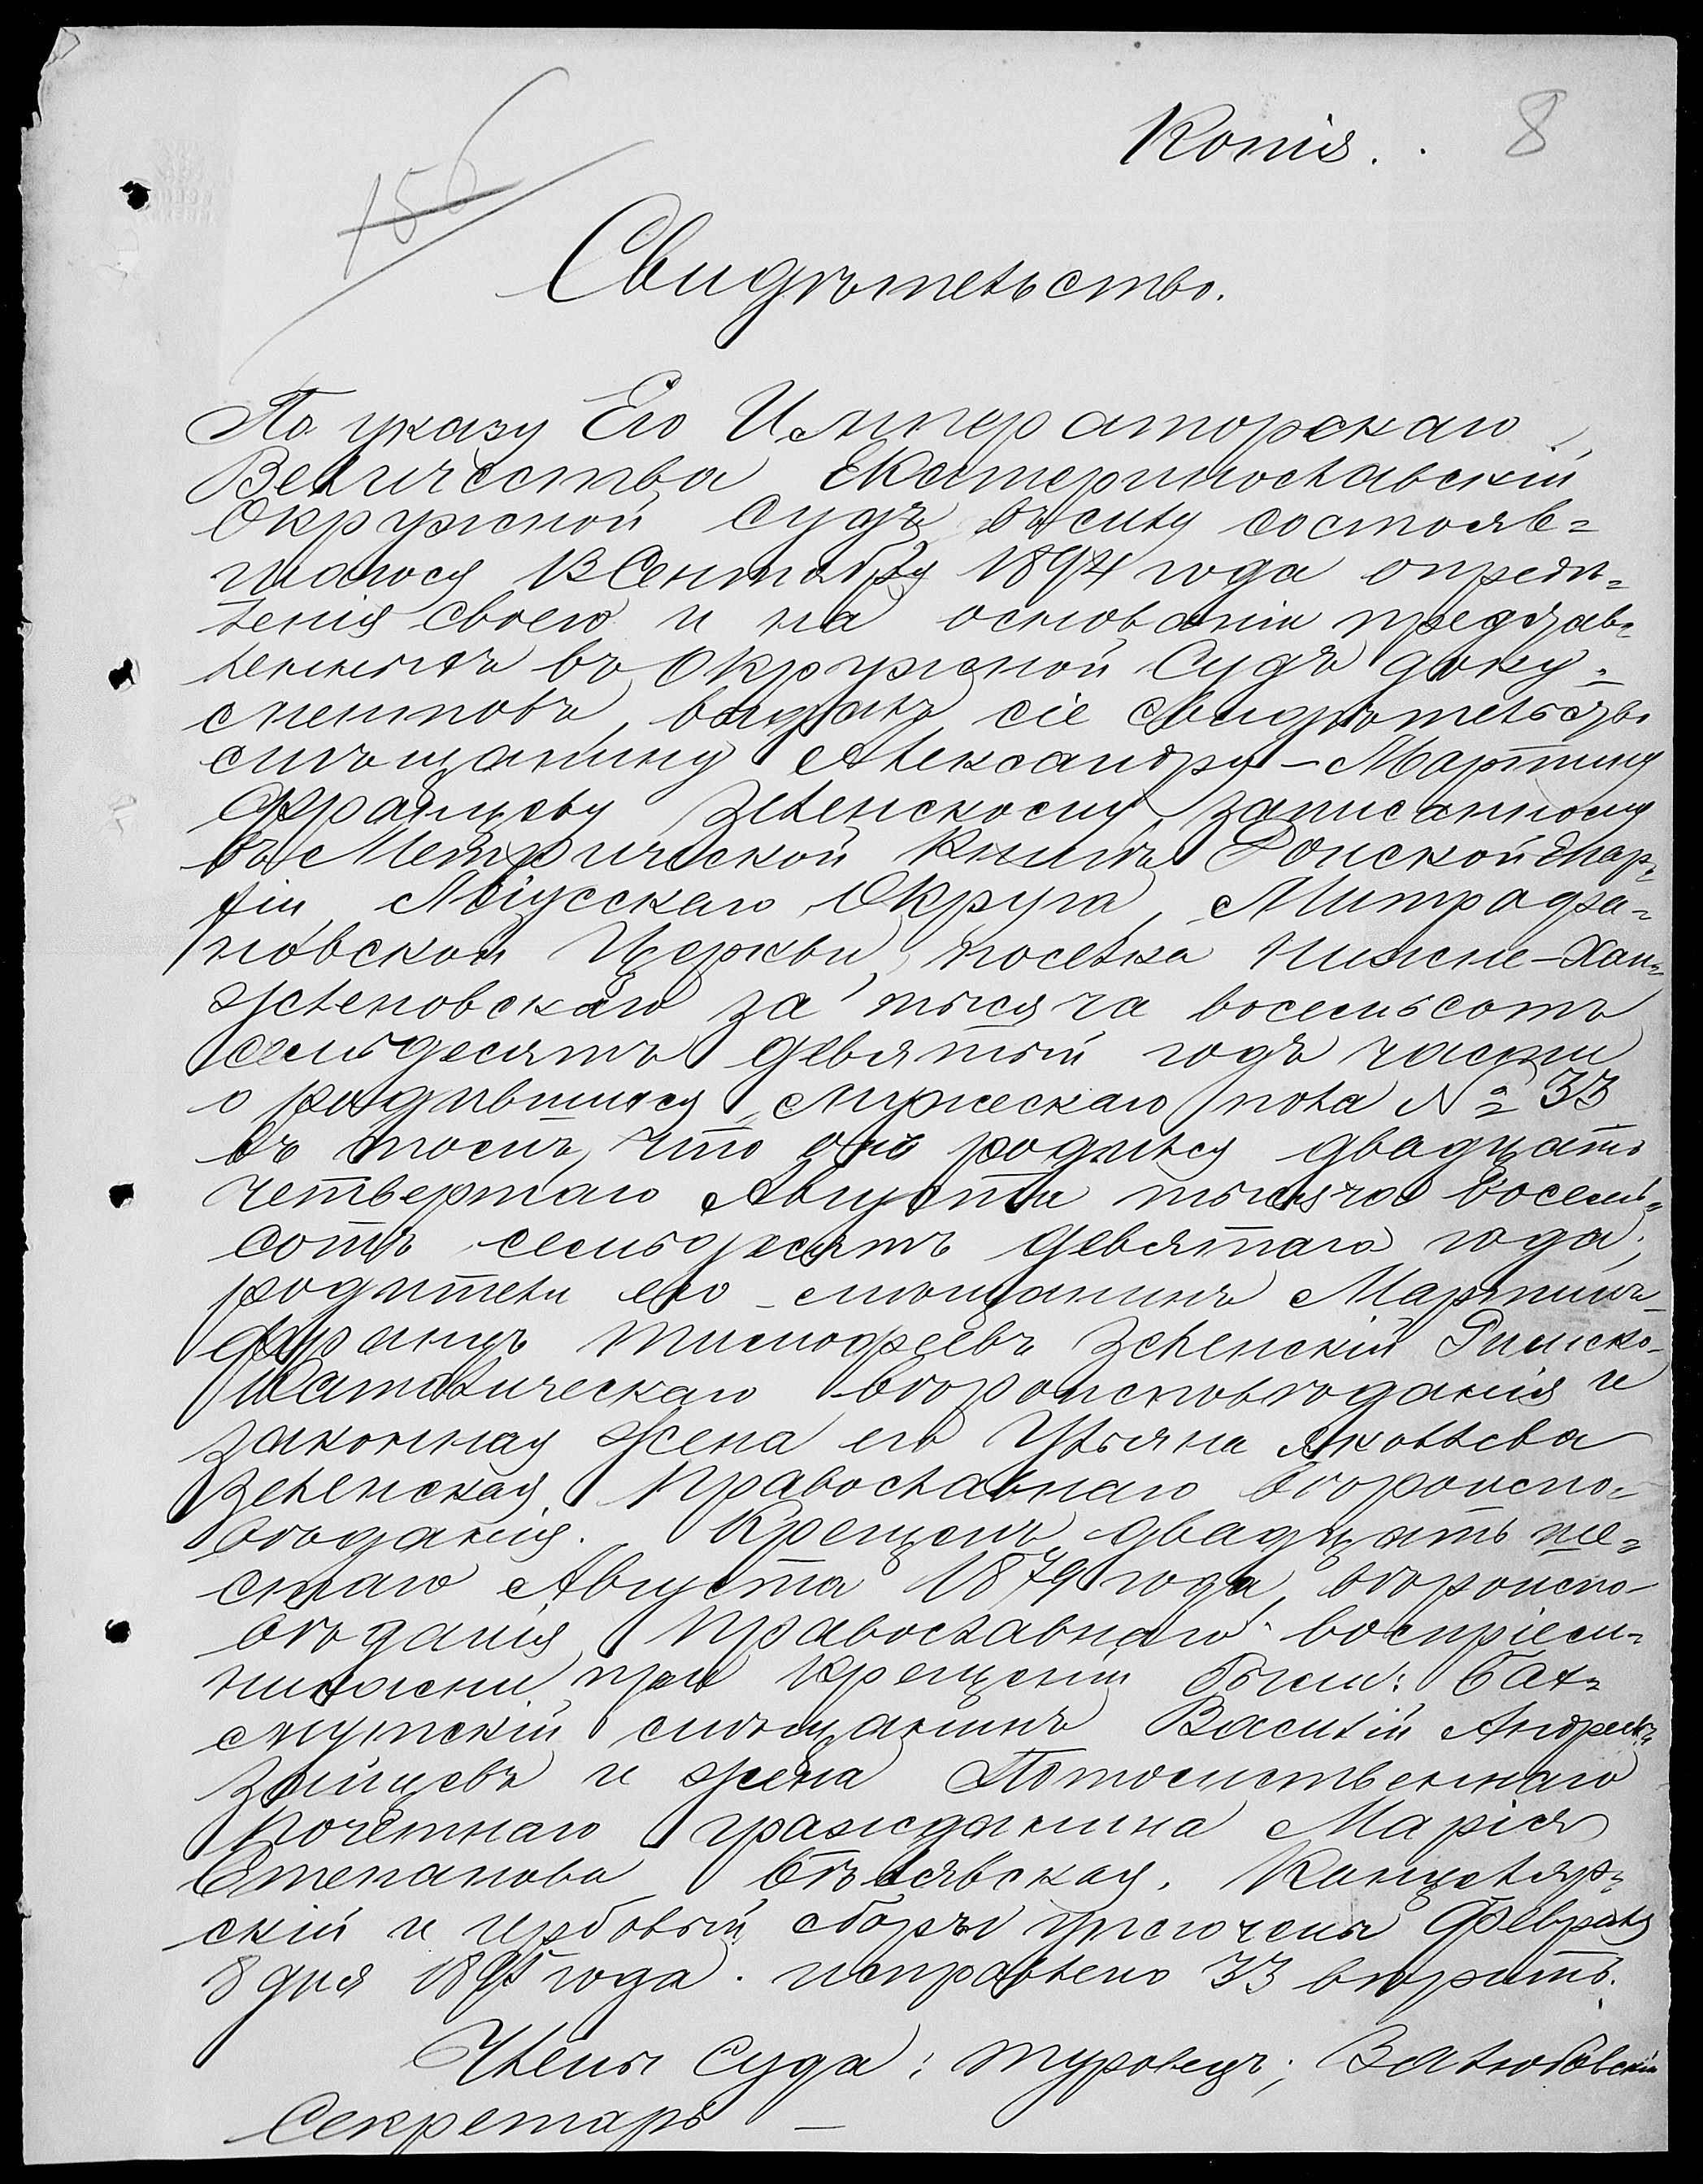 Копія. 8
156
Свидѣтельство.
По указу Его Императорскаго
Величества Екатеринославскій
Окружной Судъ въ силу состояв=
шагося 13 Сентября 1894 года опредѣ=
ленія своего и на основаніи представ=
ленныхъ въ Окружной Судъ доку=
ментовъ, выданъ сіе свидѣтельство
мѣщанину Александру-Мартину
Францеву Зеленскому, записанному
въ Метрической Книгѣ Донской Епар=
хіи, Міусскаго Округа, Митрофа=
новской Церкви, поселка Нижне-Хан=
женовскаго за тысяча восемьсотъ
семьдесятъ девятый годъ части
о родившихся, мужескаго пола № 33
въ томъ, что онъ родился двадцать
четвертаго Августа тысяча восемь=
сотъ семьдесятъ девятаго года;
родители его - мѣщанинъ Мартинъ-
Францъ Тимофеевъ Зеленскій Римско-
Католическаго вѣроисповѣданія и
законная жена его Ульяна Яковлева
Зеленская, Православнаго вѣроиспо=
вѣданія. Крещенъ двадцать ше=
стаго Августа 1879 года, вѣроиспо-
вѣданія Православнаго. воспріем=
никами при крещеніи были: Бах=
мутскій мѣщанинъ Василій Андреевъ
Зайцевъ и жена Потомственнаго
Почетнаго гражданина Марія
Степанова Бѣлявская. Канцеляр=
скій и гербовый сборы уплочены Февраля
8 дня 1895 года. исправлено 33 вѣрить.
Члены Суда: Туровецъ;
Секретарь —